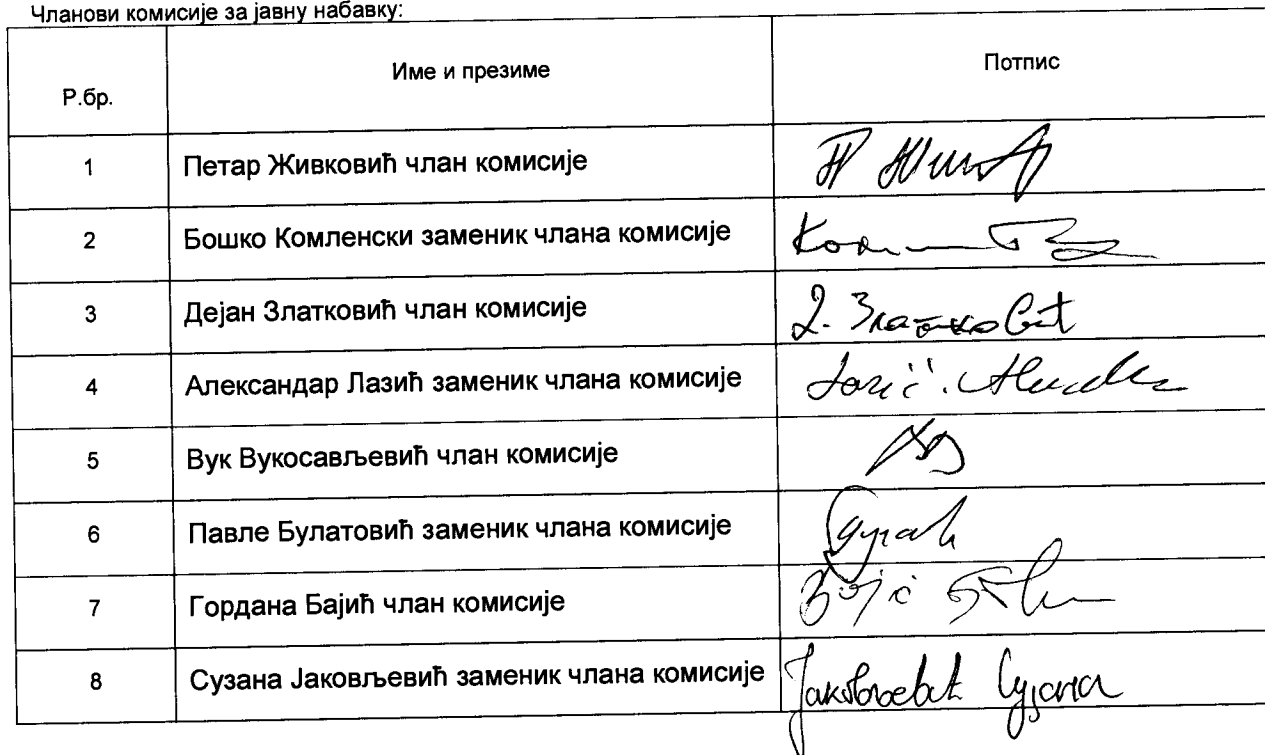 Чланови комисије за јавну набавку:
Р.бр. Име и презиме Потпис
1 Петар Живковић члан комисије
2 Бошко Комленски заменик члана комисије
3 Дејан Златковић члан комисије Д. Златковић
4 Александар Лазић заменик члана комисије
5 Вук Вукосављевић члан комисије
6 Павле Булатовић заменик члана комисије
7 Гордана Бајић члан комисије
8 Сузана Јаковљевић заменик члана комисије Јаковљевић Сузана